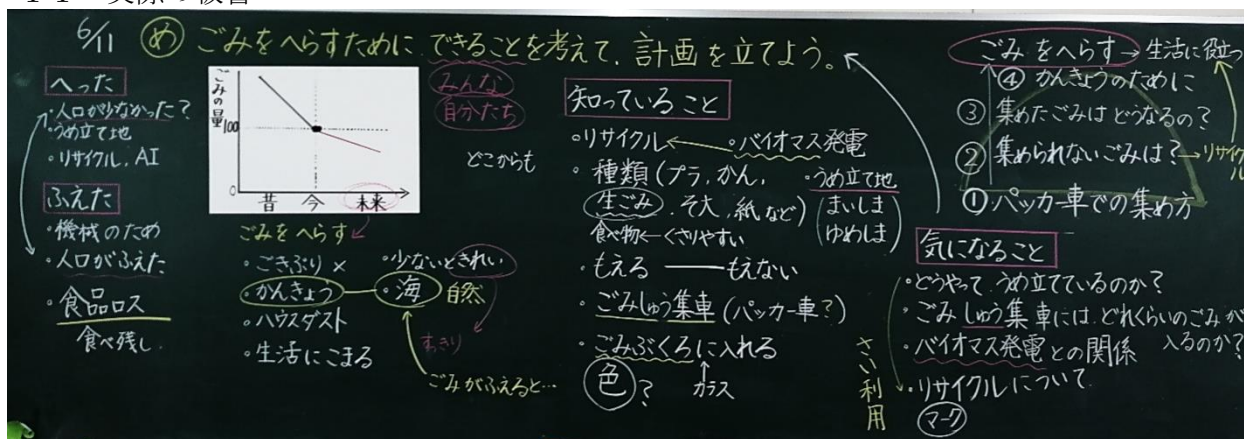 6/11 め ごみをへらすために できることを考えて、計画を立てよう。
へった
・人口が少なかった？
・うめ立て地
・リサイクル、AI
ふえた
・機械のため
・人口がふえた
・食品ロス
食べ残し
ごみの量
100
0
昔 今 未来
みんな
自分たち
どこからも
ごみをへらす
・ごきぶり ×
・かんきょう
・ハウスダスト
・生活にこまる
・少ないときれい
・海 自然
すっきり
ごみがふえると…
知っていること
・リサイクル ← ・バイオマス発電
・種類(プラ、かん、
生ごみ、そ大、紙など)
食べ物←くさりやすい
・うめ立て地
(まいしま
ゆめしま)
・もえる ― もえない
・ごみしゅう集車(パッカー車？)
・ごみぶくろに入れる
色？ ↑カラス
ごみをへらす→生活に役立つ
④ かんきょうのために
③ 集めたごみはどうなるの？
② 集められないごみは？→リサイクル
① パッカー車での集め方
気になること
・どうやって、うめ立てているのか？
・ごみしゅう集車には、どれくらいのごみが
入るのか？
・バイオマス発電との関係
・リサイクルについて
マーク
さい利用